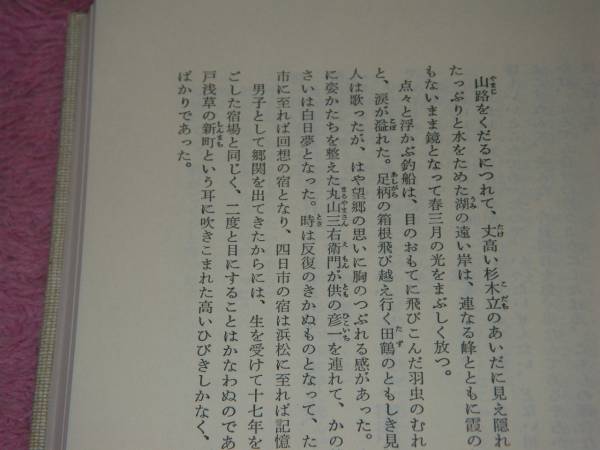 山路をくだるにつれて、丈高い杉木立のあいだに見え隠れ
たっぷりと水をためた湖の遠い岸は、連なる峰とともに霞の
もないまま鏡となって春三月の光をまぶしく放つ。
点々と浮かぶ釣船は、目のおもてに飛びこんだ羽虫のむれ
と、涙が溢れた。足柄の箱根飛び越え行く田鶴のともしき見
人は歌ったが、はや望郷の思いに胸のつぶれる感があった。
に姿かたちを整えた丸山三右衛門が供の彦一を連れて、かの
さいは白日夢となった。時は反復のきかぬものとなって、た
市に至れば回想の宿となり、四日市の宿は浜松に至れば記憶
男子として郷関を出てきたからには、生を受けて十七年を
ごした宿場と同じく、二度と目にすることはかなわぬのであ
戸浅草の新町という耳に吹きこまれた高いひびきしかなく、
ばかりであった。